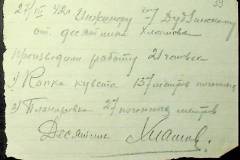 27/VI 42г Инженеру Дубвинскому
от десятника Хлатова
Производили работу 21 человек
1) Копка кувета 157 метров погонных
2) Планировка 27 погонных метров
Десятник Хлатов.